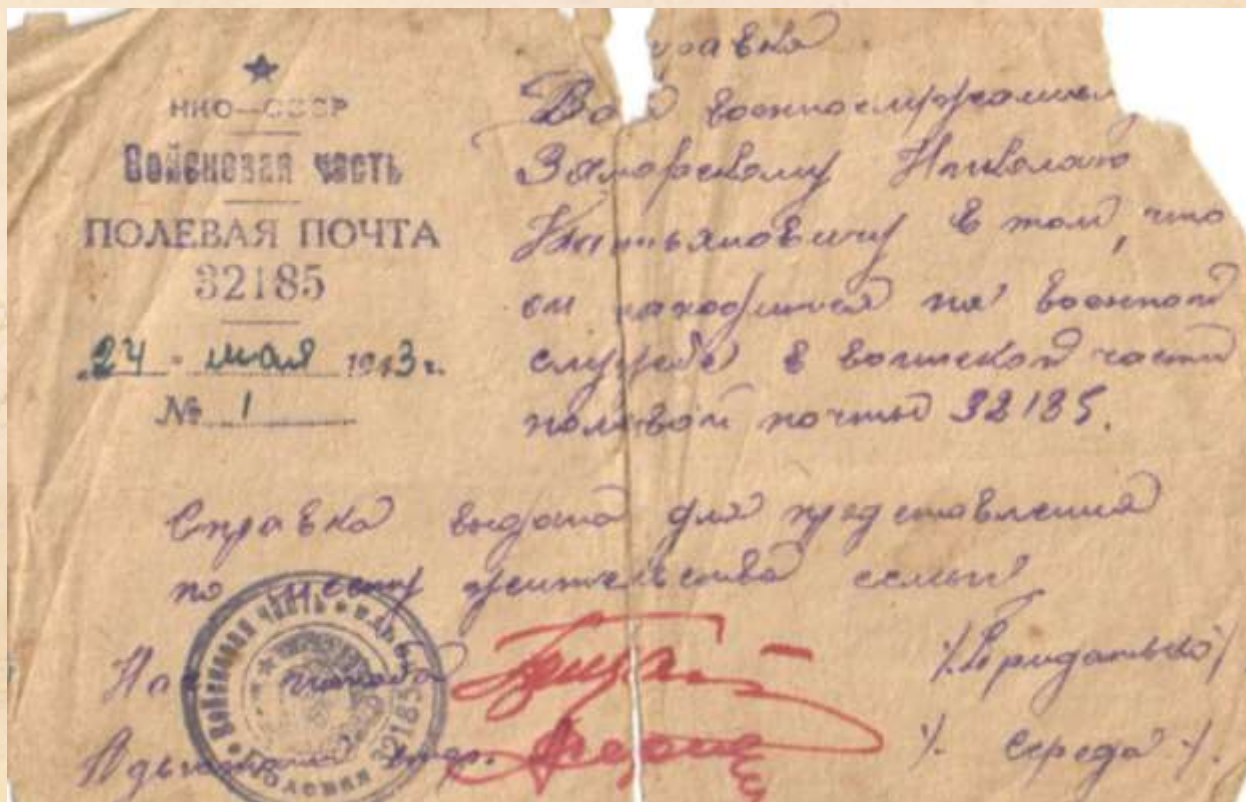 НКО—СССР
Войсковая часть
ПОЛЕВАЯ ПОЧТА
32185
"24" мая 1943 г.
№ 1
равка
военнослужащему
Заморскому Николаю
в том, что
он находится на военной
службе в воинской части
полевой почты 32185.
Справка выдана для представления
по месту жительства семьи
Нач штаба /Приданько/
Адьютант /. Середа ./.
Войсковая часть
Полевая 32185